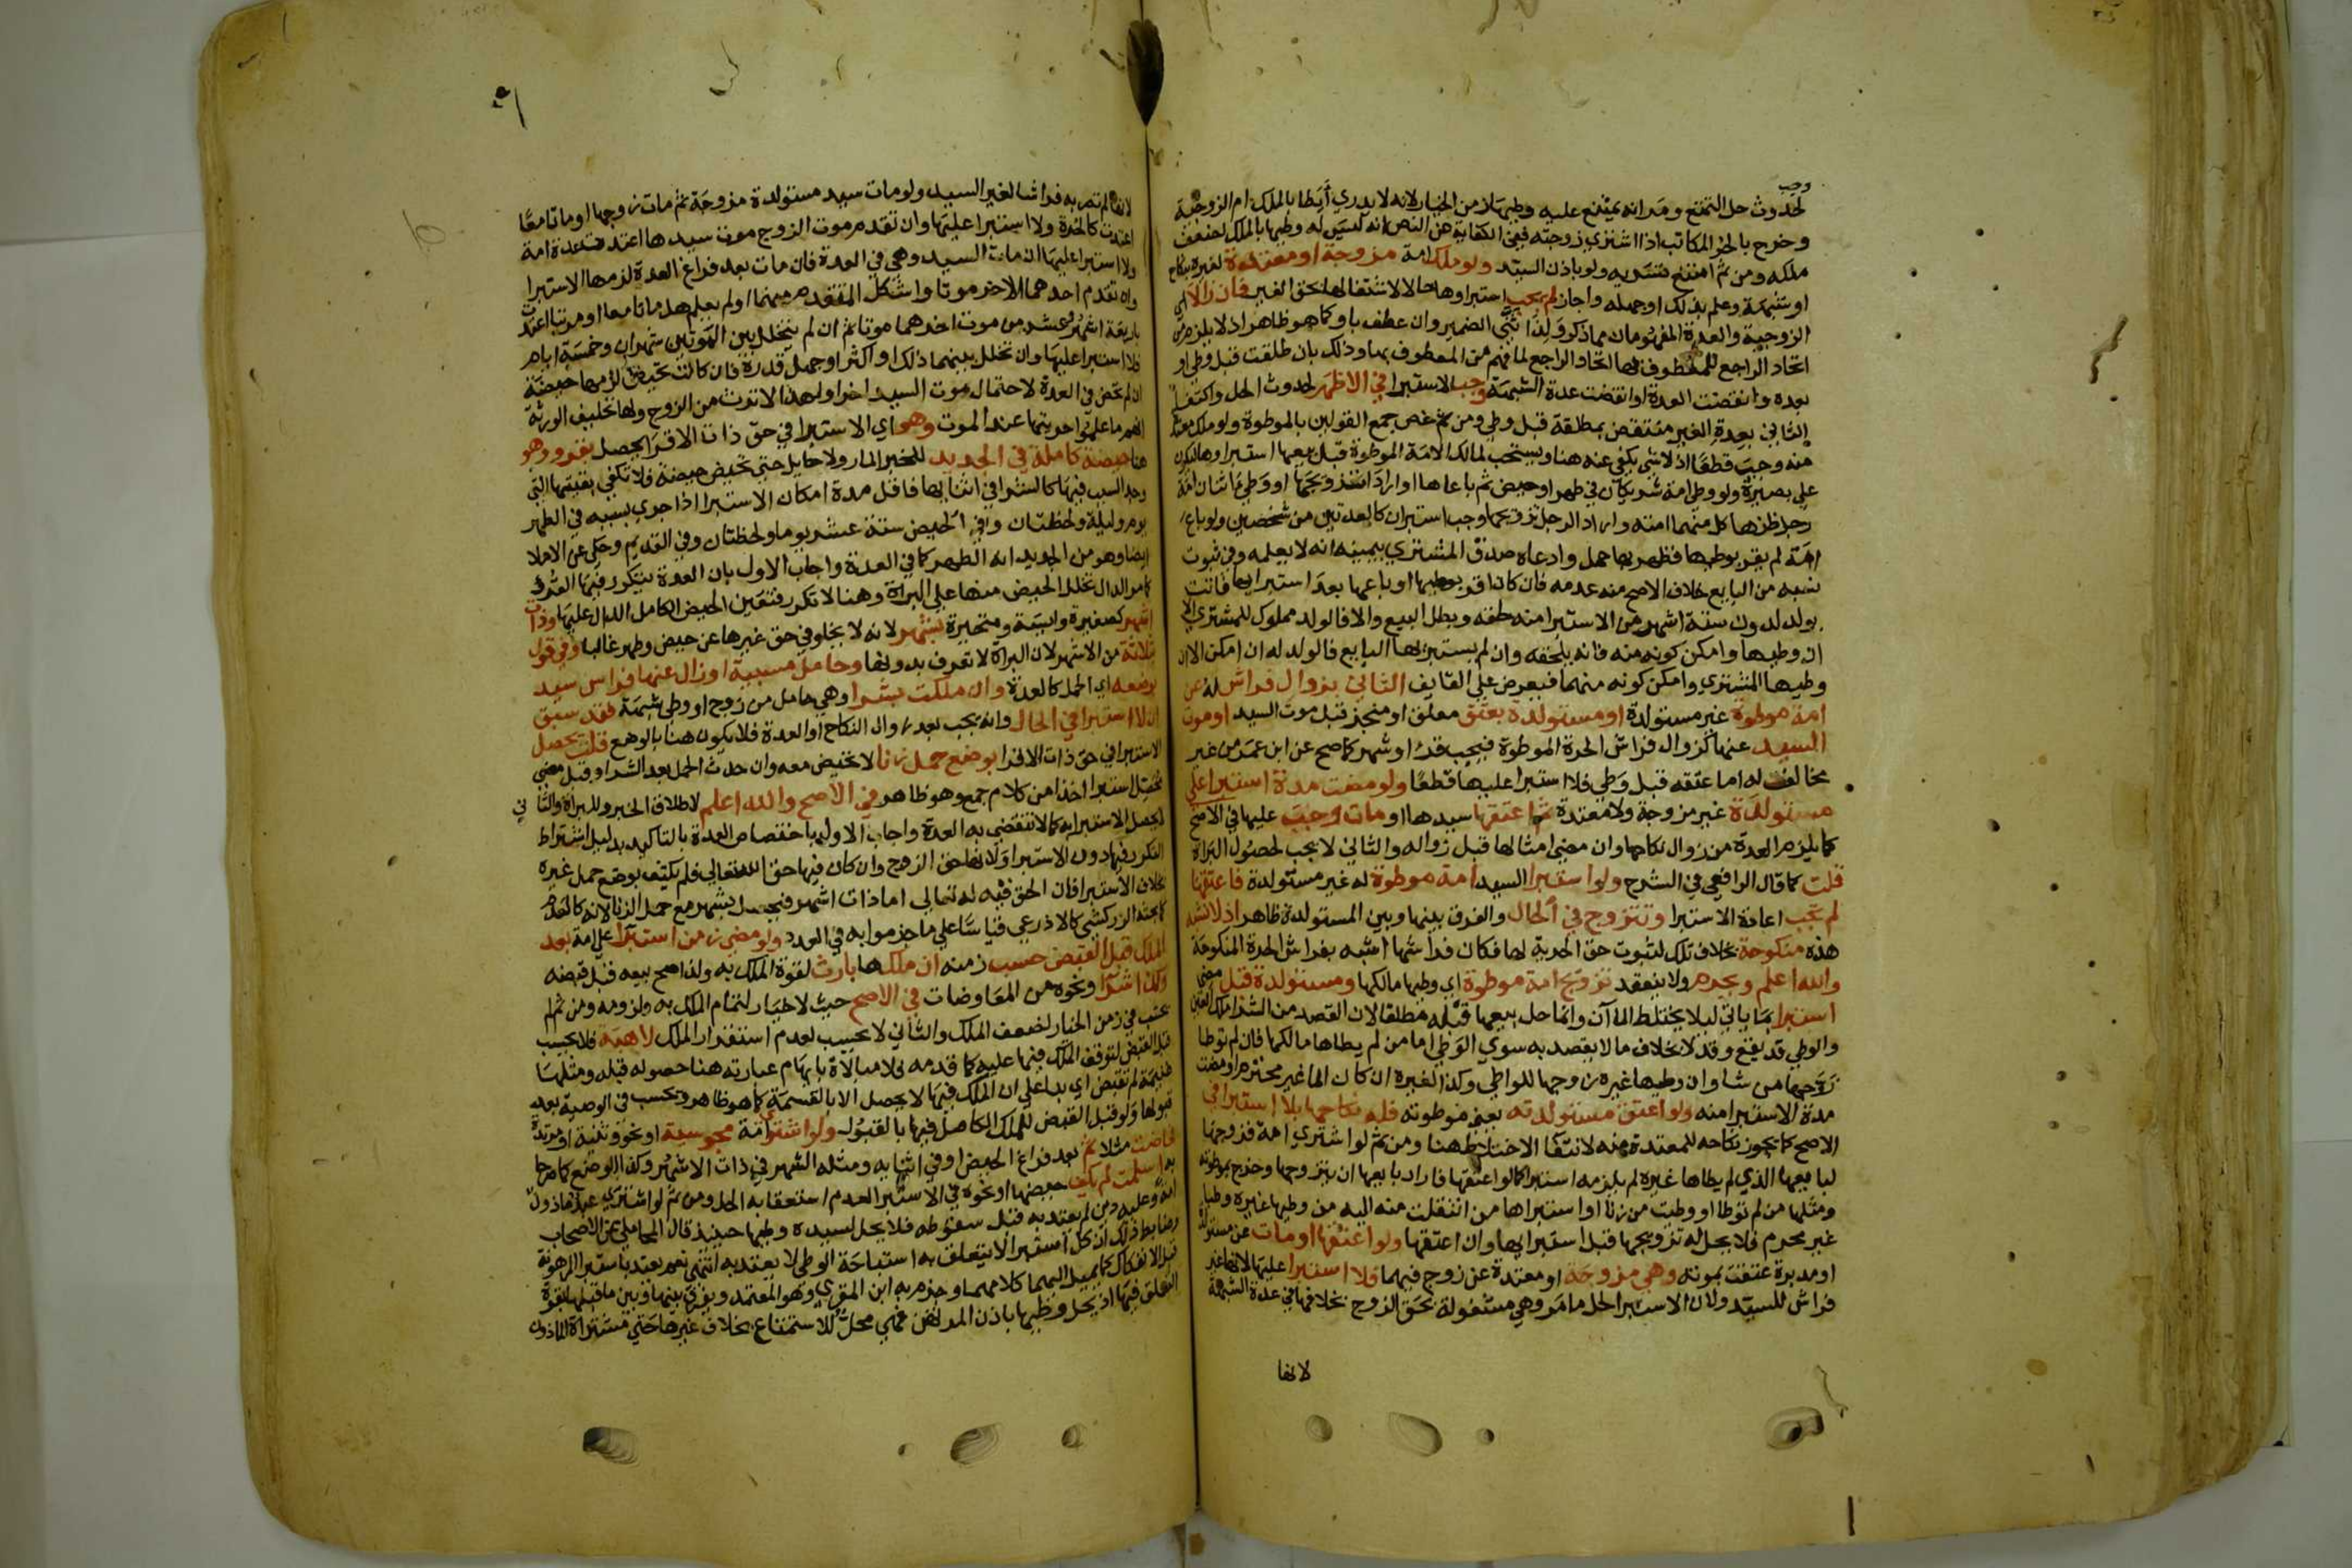 وجب
لحدوث حل التمتع ومر انه يمتنع عليه وطيها زمن الخيار لانه لا يدري أيطا بالملك ام الزوجية
وخرج بالحر المكاتب اذا اشتري زوجته ففي الكفاية عن النص انه ليس له وطيها بالملك لضعف
ملكه ومن ثم امتنع تسريه ولو باذن السيد ولو ملك امة مزوجة او معتدة لغيره بنكاح
او شبهة وعلم بذلك او جهله واجاز لم يجب استبراوها حالا لاشتغالها بحق الغير فان زالا اي
الزوجية والعدة المفهومان مما ذكر ولذا ثني الضمير وان عطف باو كما هو ظاهر اذ لا يلزم من
اتحاد الراجع للمعطوف بها اتحاد الراجع لما فهم من المعطوف بها وذلك بان طلقت قبل وطي او
بعده وانقضت العدة او انقضت عدة الشبهة وجب الاستبرا في الاظهر لحدوث الحل واكتفا
الثاني بعدة الغير منتقض بمطلقة قبل وطي ومن ثم خص جمع القولين بالموطوة ولو ملك معتدة
منه وجب قطعا اذ لا شي يكفي عنه هنا ويستحب لمالك الامة الموطوة قبل بيعها استبراوها ليكون
علي بصيرة ولو وطي امة شريكان في طهر او حيض ثم باعاها او ارادا تزويجها او وطي اثنان امة
رجل ظنها كل منهما امته واراد الرجل تزويجها وجب استبران كالعدتين من شخصين ولو باع
امة لم يقر بوطيها فظهر بها حمل وادعاه صدق المشتري بيمينه انه لا يعلمه وفي ثبوت
نسبه من البايع خلاف الاصح منه عدمه فان كان اقر بوطيها او باعها بعد استبرايها فاتت
بولد لدون ستة اشهر من الاستبرا منه لحقه وبطل البيع والا فالولد مملوك للمشتري الا
ان وطيها وامكن كونه منه فانه يلحقه وان لم يستبرئها البايع فالولد له ان امكن الا ان
وطيها المشتري وامكن كونه منهما فيعرض علي القايف الثاني بزوال فراش له عن
امة موطوة غير مستولدة او مستولدة بعتق معلق او منجز قبل موت السيد او موت
السيد عنها كزوال فراش الحرة الموطوة فيجب قرء او شهر كما صح عن ابن عمر من غير
مخالف له اما عتقه قبل وطي فلا استبرا عليها قطعا ولو مضت مدة استبرا علي
مستولدة غير مزوجة ولا معتدة ثم اعتقها سيدها او مات وجب عليها في الاصح
كما يلزم العدة من زوال نكاحها وان مضي امثالها قبل زواله والثاني لا يجب لحصول البراة
قلت كما قال الرافعي في الشرح ولو استبرا السيد امة موطوة له غير مستولدة فاعتقها
لم يجب اعادة الاستبرا وتتزوج في الحال والفرق بينها وبين المستولدة ظاهر اذ لا تشبه
هذه منكوحة بخلاف تلك لثبوت حق الحرية لها فكان فراشها اشبه بفراش الحرة المنكوحة
والله اعلم ويحرم ولا ينعقد تزويج امة موطوة اي وطيها مالكها ومستولدة قبل مضي
استبرا بما ياتي ليلا يختلط الماآن وانما حل بيعها قبله مطلقا لان القصد من الشرا ملك العين
والوطي قد يقع وقد لا بخلاف ما لا يقصد به سوي الوطي اما من لم يطاها مالكها فان لم توطا
زوجها من شا وان وطيها غيره زوجها للواطي وكذا لغيره ان كان الما غير محترم او مضت
مدة الاستبرا منه ولو اعتق مستولدته يعني موطوته فله نكاحها بلا استبرا في
الاصح كما يجوز نكاحه للمعتدة منه لانتفا الاختلاط هنا ومن ثم لو اشتري امة فزوجها
لبايعها الذي لم يطاها غيره لم يلزمه استبرا كما لو اعتقها فاراد بايعها ان يتزوجها وخرج بموطوته
ومثلها من لم توطا او وطيت من زنا او استبراها من انتقلت منه اليه من وطيها غيره وطيا
غير محرم فلا يحل له تزويجها قبل استبرايها وان اعتقها ولو اعتقها او مات عن مستولدة
او مدبرة عتقت بموته وهي مزوجة او معتدة عن زوج فيهما فلا استبرا عليها لانها غير
فراش للسيد ولان الاستبرا لحل ما مر وهي مشغولة بحق الزوج بخلافها في عدة الشبهة
لانها
لانها لم تصر به فراشا لغير السيد ولو مات سيد مستولدة مزوجة ثم مات زوجها او ماتا معا
اعتدت كالحرة ولا استبرا عليها وان تقدم موت الزوج موت سيدها اعتدت عدة امة
ولا استبرا عليها ان مات السيد وهي في العدة فان مات بعد فراغ العدة لزمها الاستبرا
وان تقدم احدهما الاخر موتا واشكل المتقدم منهما او لم يعلم هل ماتا معا او مرتبا اعتدت
باربعة اشهر وعشر من موت اخرهما موتا ثم ان لم يتخلل بين الموتين شهران وخمسة ايام
فلا استبرا عليها وان تخلل بينهما ذلك او اكثر او جهل قدره فان كانت تحيض لزمها حيضة
ان لم تحض في العدة لاحتمال موت السيد اخرا ولهذا لا ترث من الزوج ولها تحليف الورثة
انهم ما علموا حريتها عند الموت وهو اي الاستبرا في حق ذات الاقرا يحصل بقرء وهو
هنا حيضة كاملة في الجديد للخبر المار ولا حايل حتي تحيض حيضة فلا تكفي بقيتها التي
وجد السبب فيها كالشرا في اثنايها فاقل مدة امكان الاستبرا اذا جري بسببه في الطهر
يوم وليلة ولحظتان وفي الحيض ستة عشر يوما ولحظتان وفي القديم وحكي عن الاملا
ايضا وهو من الجديد انه الطهر كما في العدة واجاب الاول بان العدة يتكرر فيها القرء
كما مر الدال تخلل الحيض منها علي البراة وهنا لا تكرر فتعين الحيض الكامل الدال عليها وذات
اشهر كصغيرة وايسة ومتحيرة بشهر لانه لا يخلو في حق غيرها عن حيض وطهر غالبا وفي قول
ثلاثة من الاشهر لان البراة لا تعرف بدونها وحامل مسبية او زال عنها فراش سيد
بوضعه اي الحمل كالعدة وان ملكت بشرا وهي حامل من زوج او وطي شبهة فقد سبق
ان لا استبرا في الحال وانه يجب بعد زوال النكاح او العدة فلا يكون هنا بالوضع قلت يحصل
الاستبرا في حق ذات الاقرا بوضع حمل زنا لا تحيض معه وان حدث الحمل بعد الشرا وقبل مضي
محصل استبرا اخذا من كلام جمع وهو ظاهر في الاصح والله اعلم لاطلاق الخبر وللبراة والثاني
لا يحصل الاستبرا به كما لا تنقضي به العدة واجاب الاول باختصاص العدة بالتاكيد بدليل اشتراط
التكرر فيها دون الاستبرا ولان فيها حق الزوج وان كان فيها حق الله تعالي فلم يكتف بوضع حمل غيره
بخلاف الاستبرا فان الحق فيه له تعالي اما ذات اشهر فيحصل بشهر مع حمل الزنا لانه كالعدم
كما بحثه الزركشي كالاذرعي قياسا علي ما جزموا به في العدد ولو مضي زمن استبرا علي امة بعد
الملك قبل القبض حسب زمنه ان ملكها بارث لقوة الملك به ولذا صح بيعه قبل قبضه
وكذا شرا ونحوه من المعاوضات في الاصح حيث لا خيار لتمام الملك به ولزومه ومن ثم لم
يحسب في زمن الخيار لضعف الملك والثاني لا يحسب لعدم استقرار الملك لا هبة فلا يحسب
قبل القبض لتوقف الملك فيها عليه كما قدمه فلا مبالاة بايهام عبارته هنا حصوله قبله ومثلها
غنيمة لم تقبض اي بنا علي ان الملك فيها لا يحصل الا بالقسمة كما هو ظاهر ويحسب في الوصية بعد
قبولها ولو قبل القبض للملك الكامل فيها بالقبول ولو اشتري امة مجوسية او نحو وثنية او مرتدة
فحاضت مثلا ثم بعد فراغ الحيض او في اثنايه ومثله الشهر في ذات الاشهر وكذا الوضع كما صرحا
به اسلمت لم يكف حيضها او نحوه في الاستبرا لعدم استعقابه الحل ومن ثم لو اشتري عبد ماذون
امة وعليه دين لم يعتد به قبل سقوطه فلا يحل لسيده وطيها حينيذ قال المحاملي عن الاصحاب
وضابط ذلك ان كل استبرا لا يتعلق به استباحة الوطي لا يعتد به انتهي نعم يعتد باستبرا المرهونة
قبل الانفكاك كما يميل اليه كلامهما وجزم به ابن المقري وهو المعتمد ويفرق بينها وبين ما قبلها بقوة
التعلق فيها اذ يحل وطيها باذن المرتهن فهي محل للاستمتاع بخلاف غيرها حتي مشتراة الماذون